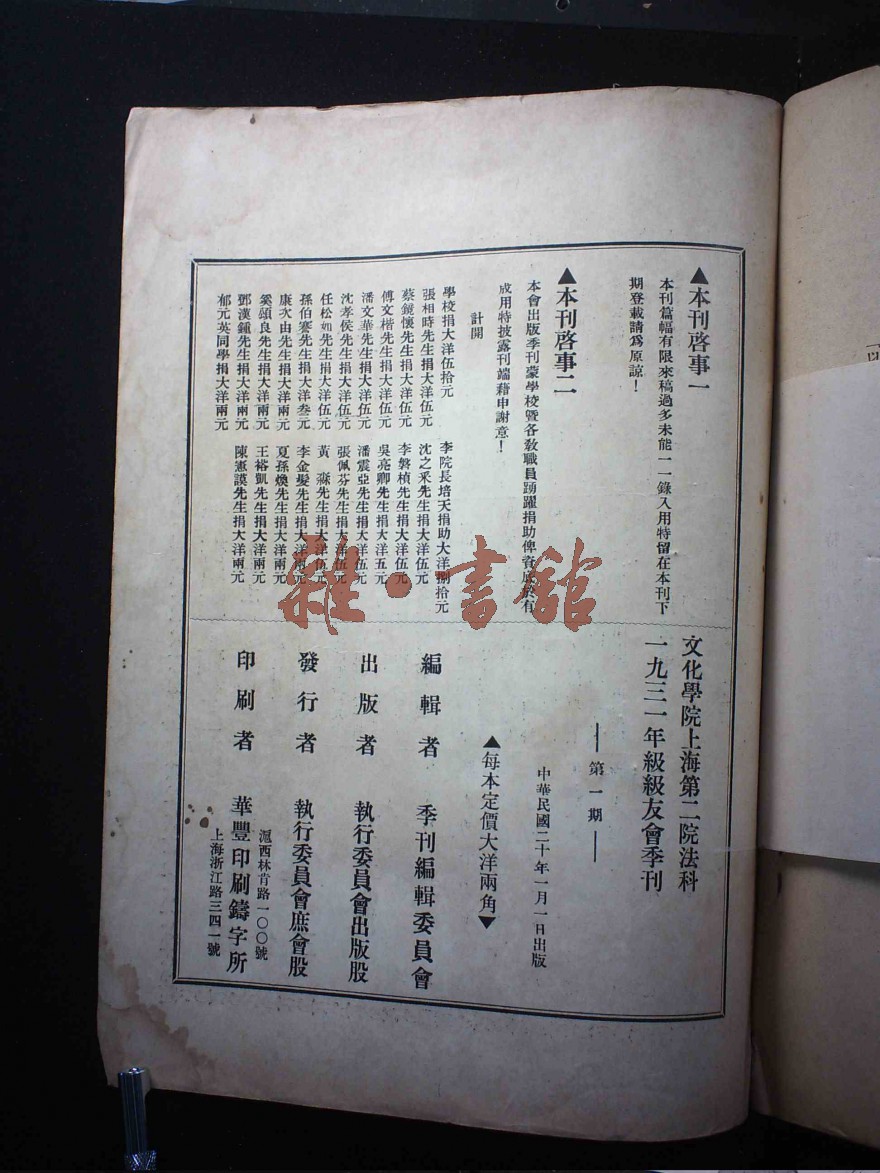 ▲本刊啓事一
本刊篇幅有限來稿過多未能一一錄入用特留在本刊下
期登載請爲原諒！
▲本刊啓事二
本會出版季刊蒙學校暨各教職員踴躍捐助俾資底於有
成用特披露刊端藉申謝意！
計開
學校捐大洋伍拾元
張相時先生捐大洋伍元
蔡鏡懷先生捐大洋伍元
傅文楷先生捐大洋伍元
潘文華先生捐大洋伍元
沈孝侯先生捐大洋伍元
任松如先生捐大洋伍元
孫伯謇先生捐大洋叁元
康次由先生捐大洋兩元
奚頌良先生捐大洋兩元
鄧漢鍾先生捐大洋兩元
郁元英同學捐大洋兩元
李院長培天捐助大洋捌拾元
沈之釆先生捐大洋伍元
李磐楨先生捐大洋伍元
吳亮卿先生捐大洋五元
潘震亞先生捐大洋伍元
張佩芬先生捐大洋伍元
黃　淼先生捐大洋伍元
李金髮先生捐大洋兩元
夏孫煥先生捐大洋兩元
王裕凱先生捐大洋兩元
陳憲謨先生捐大洋兩元
文化學院上海第二院法科
一九三一年級級友會季刊
第一期
中華民國二十年一月一日出版
▲每本定價大洋兩角▼
編輯者　季刊編輯委員會
出版者　執行委員會出版股
發行者　執行委員會庶會股
印刷者　華豐印刷鑄字所
滬西林肯路一〇〇號
上海浙江路三四一號
雜·書館